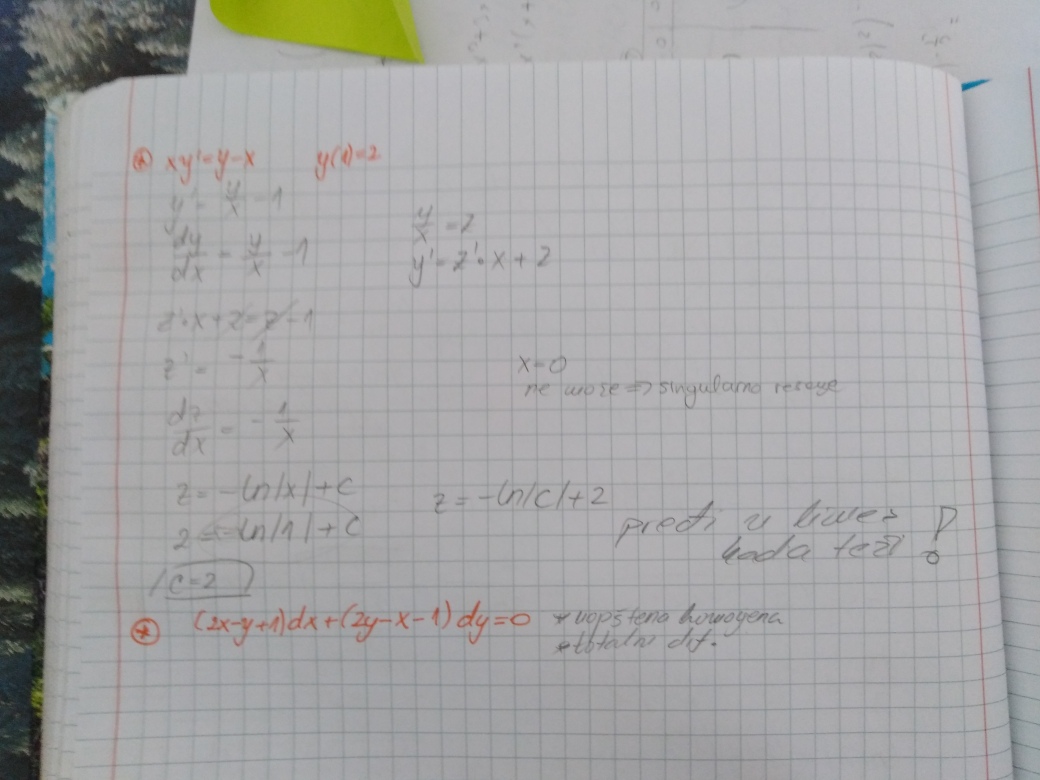 * xy' = y - x y(1) = 2
y' = y/x - 1
y/x = z
dy/dx = y/x - 1
y' = z' · x + z
z' · x + z = z - 1
z' = - 1/x
x = 0
ne može => singularno rešenje
dz/dx = - 1/x
z = - ln|x| + c
z = - ln|c| + 2
2 = - ln|1| + c
preći u limes
kada teži !
c = 2
* (2x-y+1)dx + (2y-x-1)dy = 0 * uopštena homogena
* totalni dif.